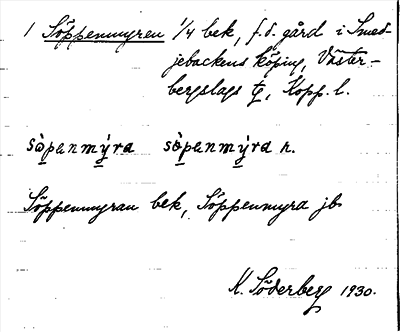 1 Söppenmyren 1/4 bek, f.d. gård i Smed-
jebackens köping, Väster-
bergslags tg, Kopp. l.
sòpanmýra sòpanmýrd n.
Söppenmyran bek, Söppenmyra jb
K. Söderberg 1930.